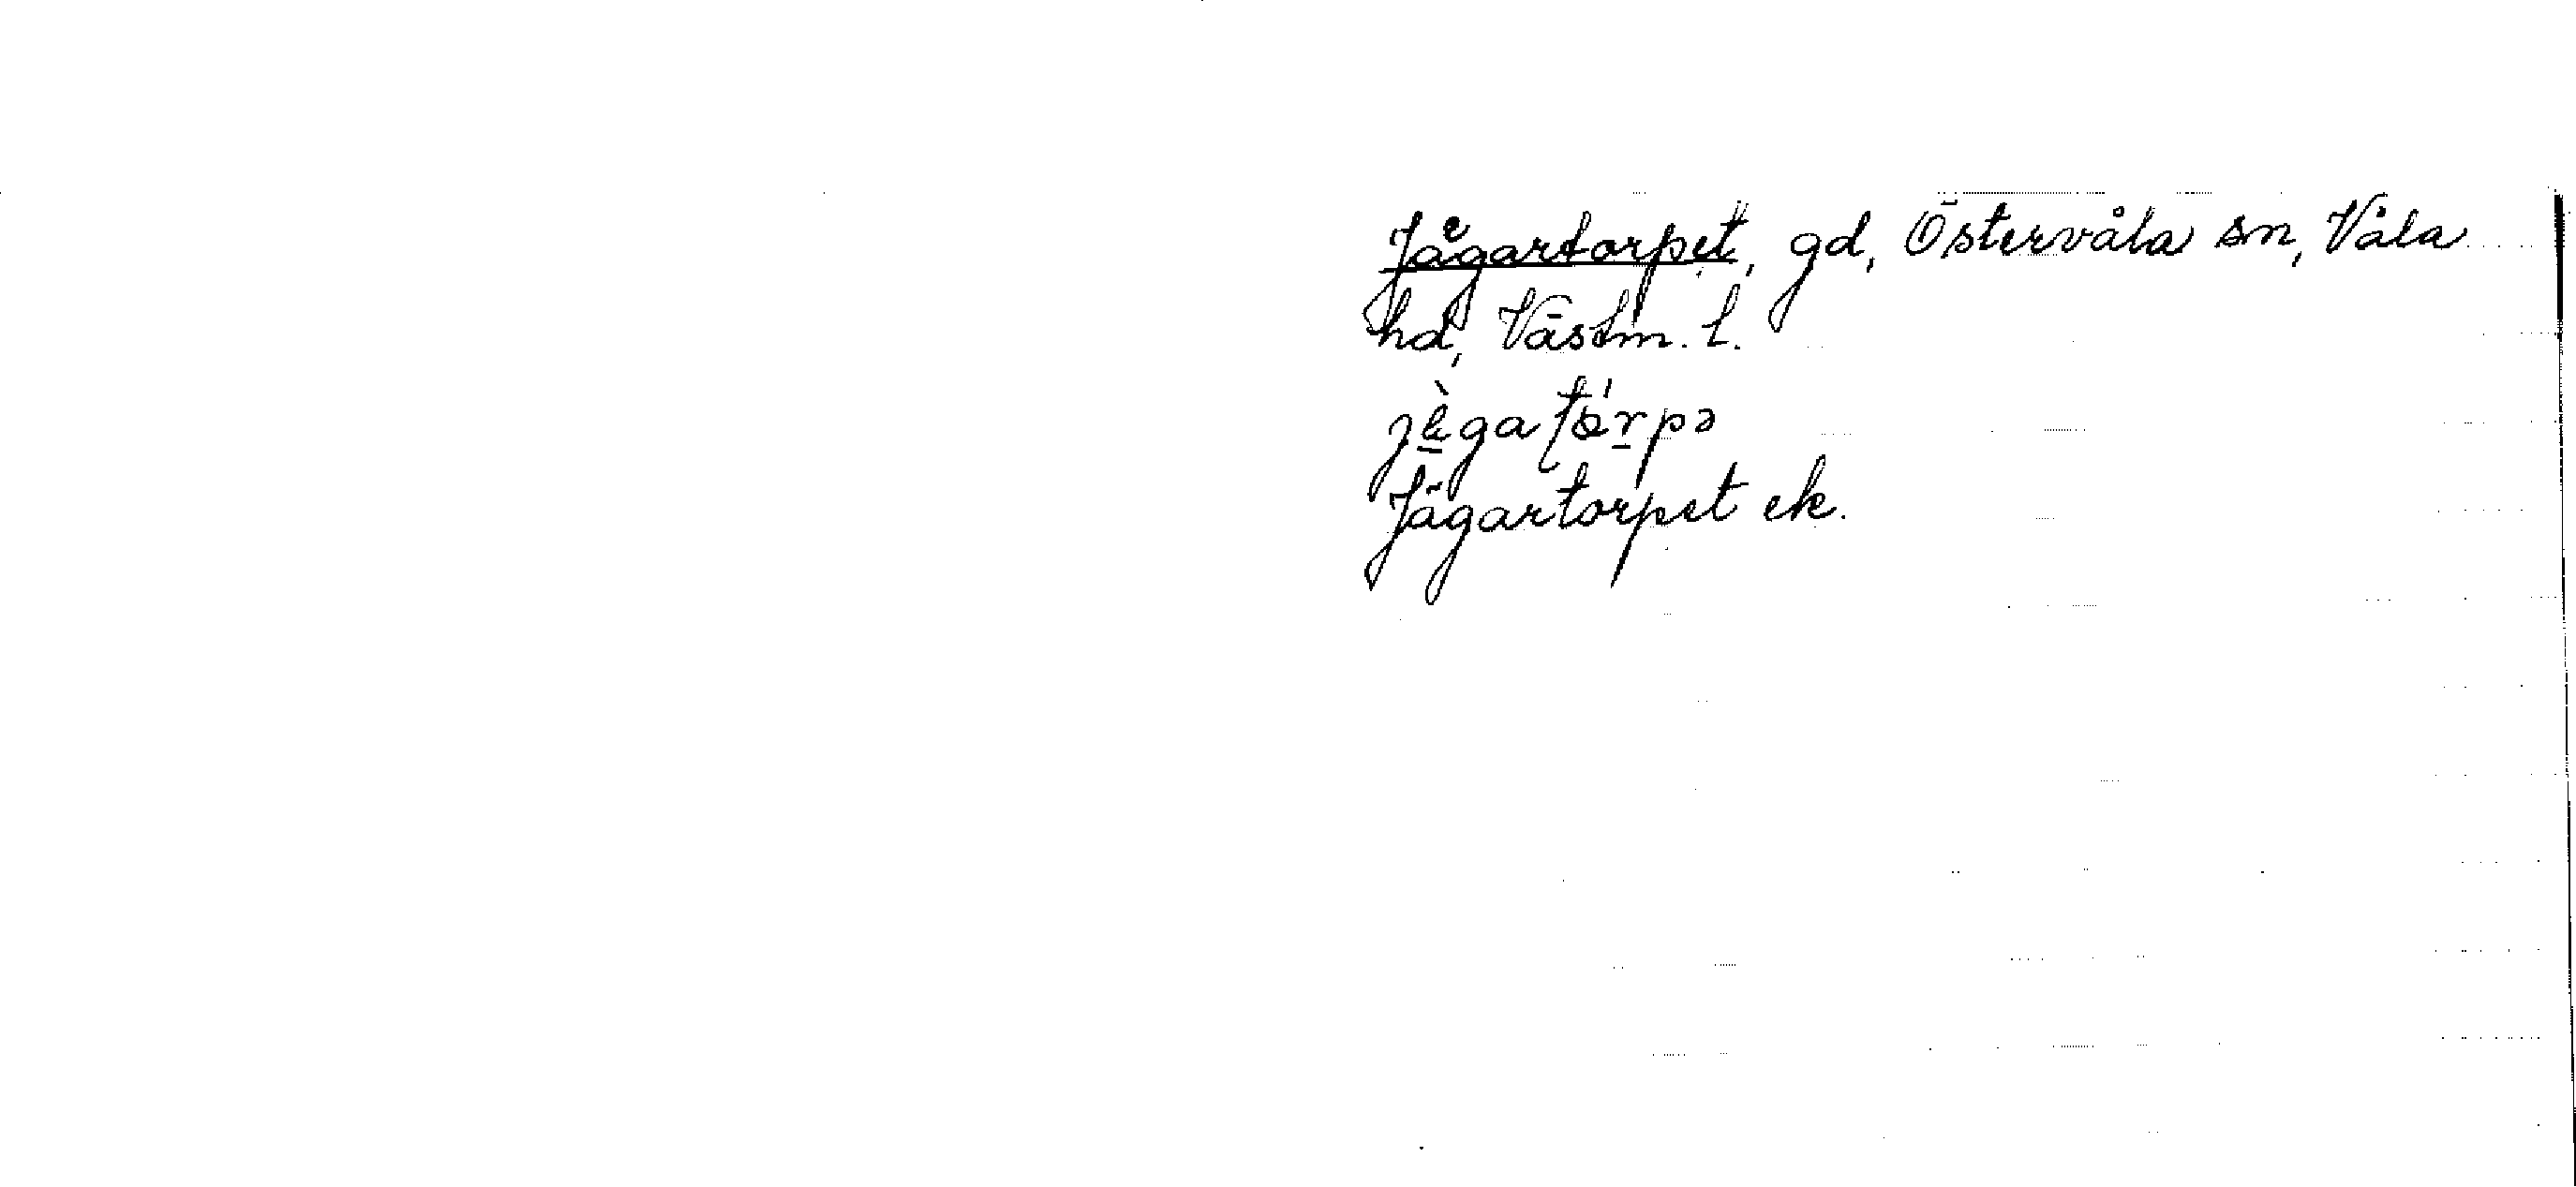 Jägartorpet, gd, Östervåla sn, Våla
hd, Västm. l.
Jägartorpet ek.